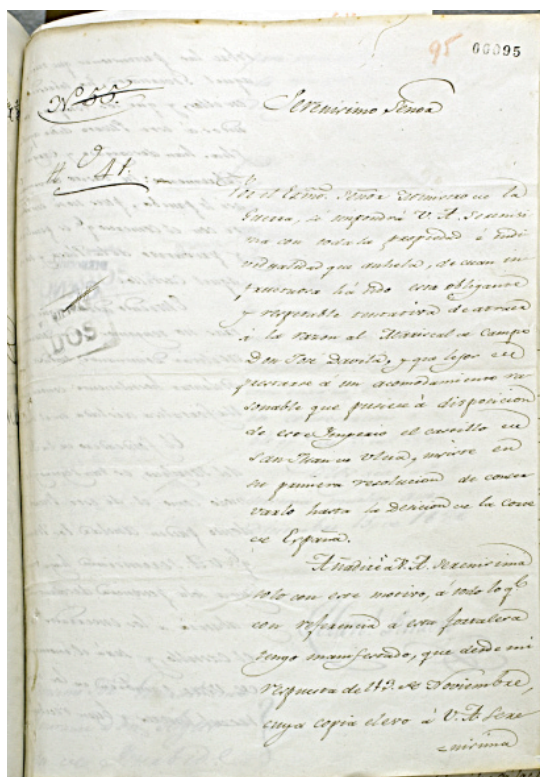 95 00095
Nº 55.
Serenisimo Señor
Nº 41.
el Exmô. Señor Ministro de la
Guerra, se impondrá V. A. Serenisi
ma con toda la propiedad é indi
vidualidad que anhela, de cuan in
fructuosa há sido esta obligante
y respetable tentativa de atraer
á la razon al Mariscal de Campo
Don José Davila, y que lejos de
prestarse a un acomodamiento ra
sonable que pusiese á disposicion
de este Imperio el castillo de
San Juan de Ulua, insiste en
su primera resolucion de conser
varlo hasta la decision de la Corte
de España.
Añadiré á V. A. Serenisima
solo con este motivo, á todo lo q.e
con referencia á esta fortaleza
tengo manifestado, que desde mi
respuesta del 13 de Noviembre,
cuya copia elevo á V. A. Sere
nisima
DOS